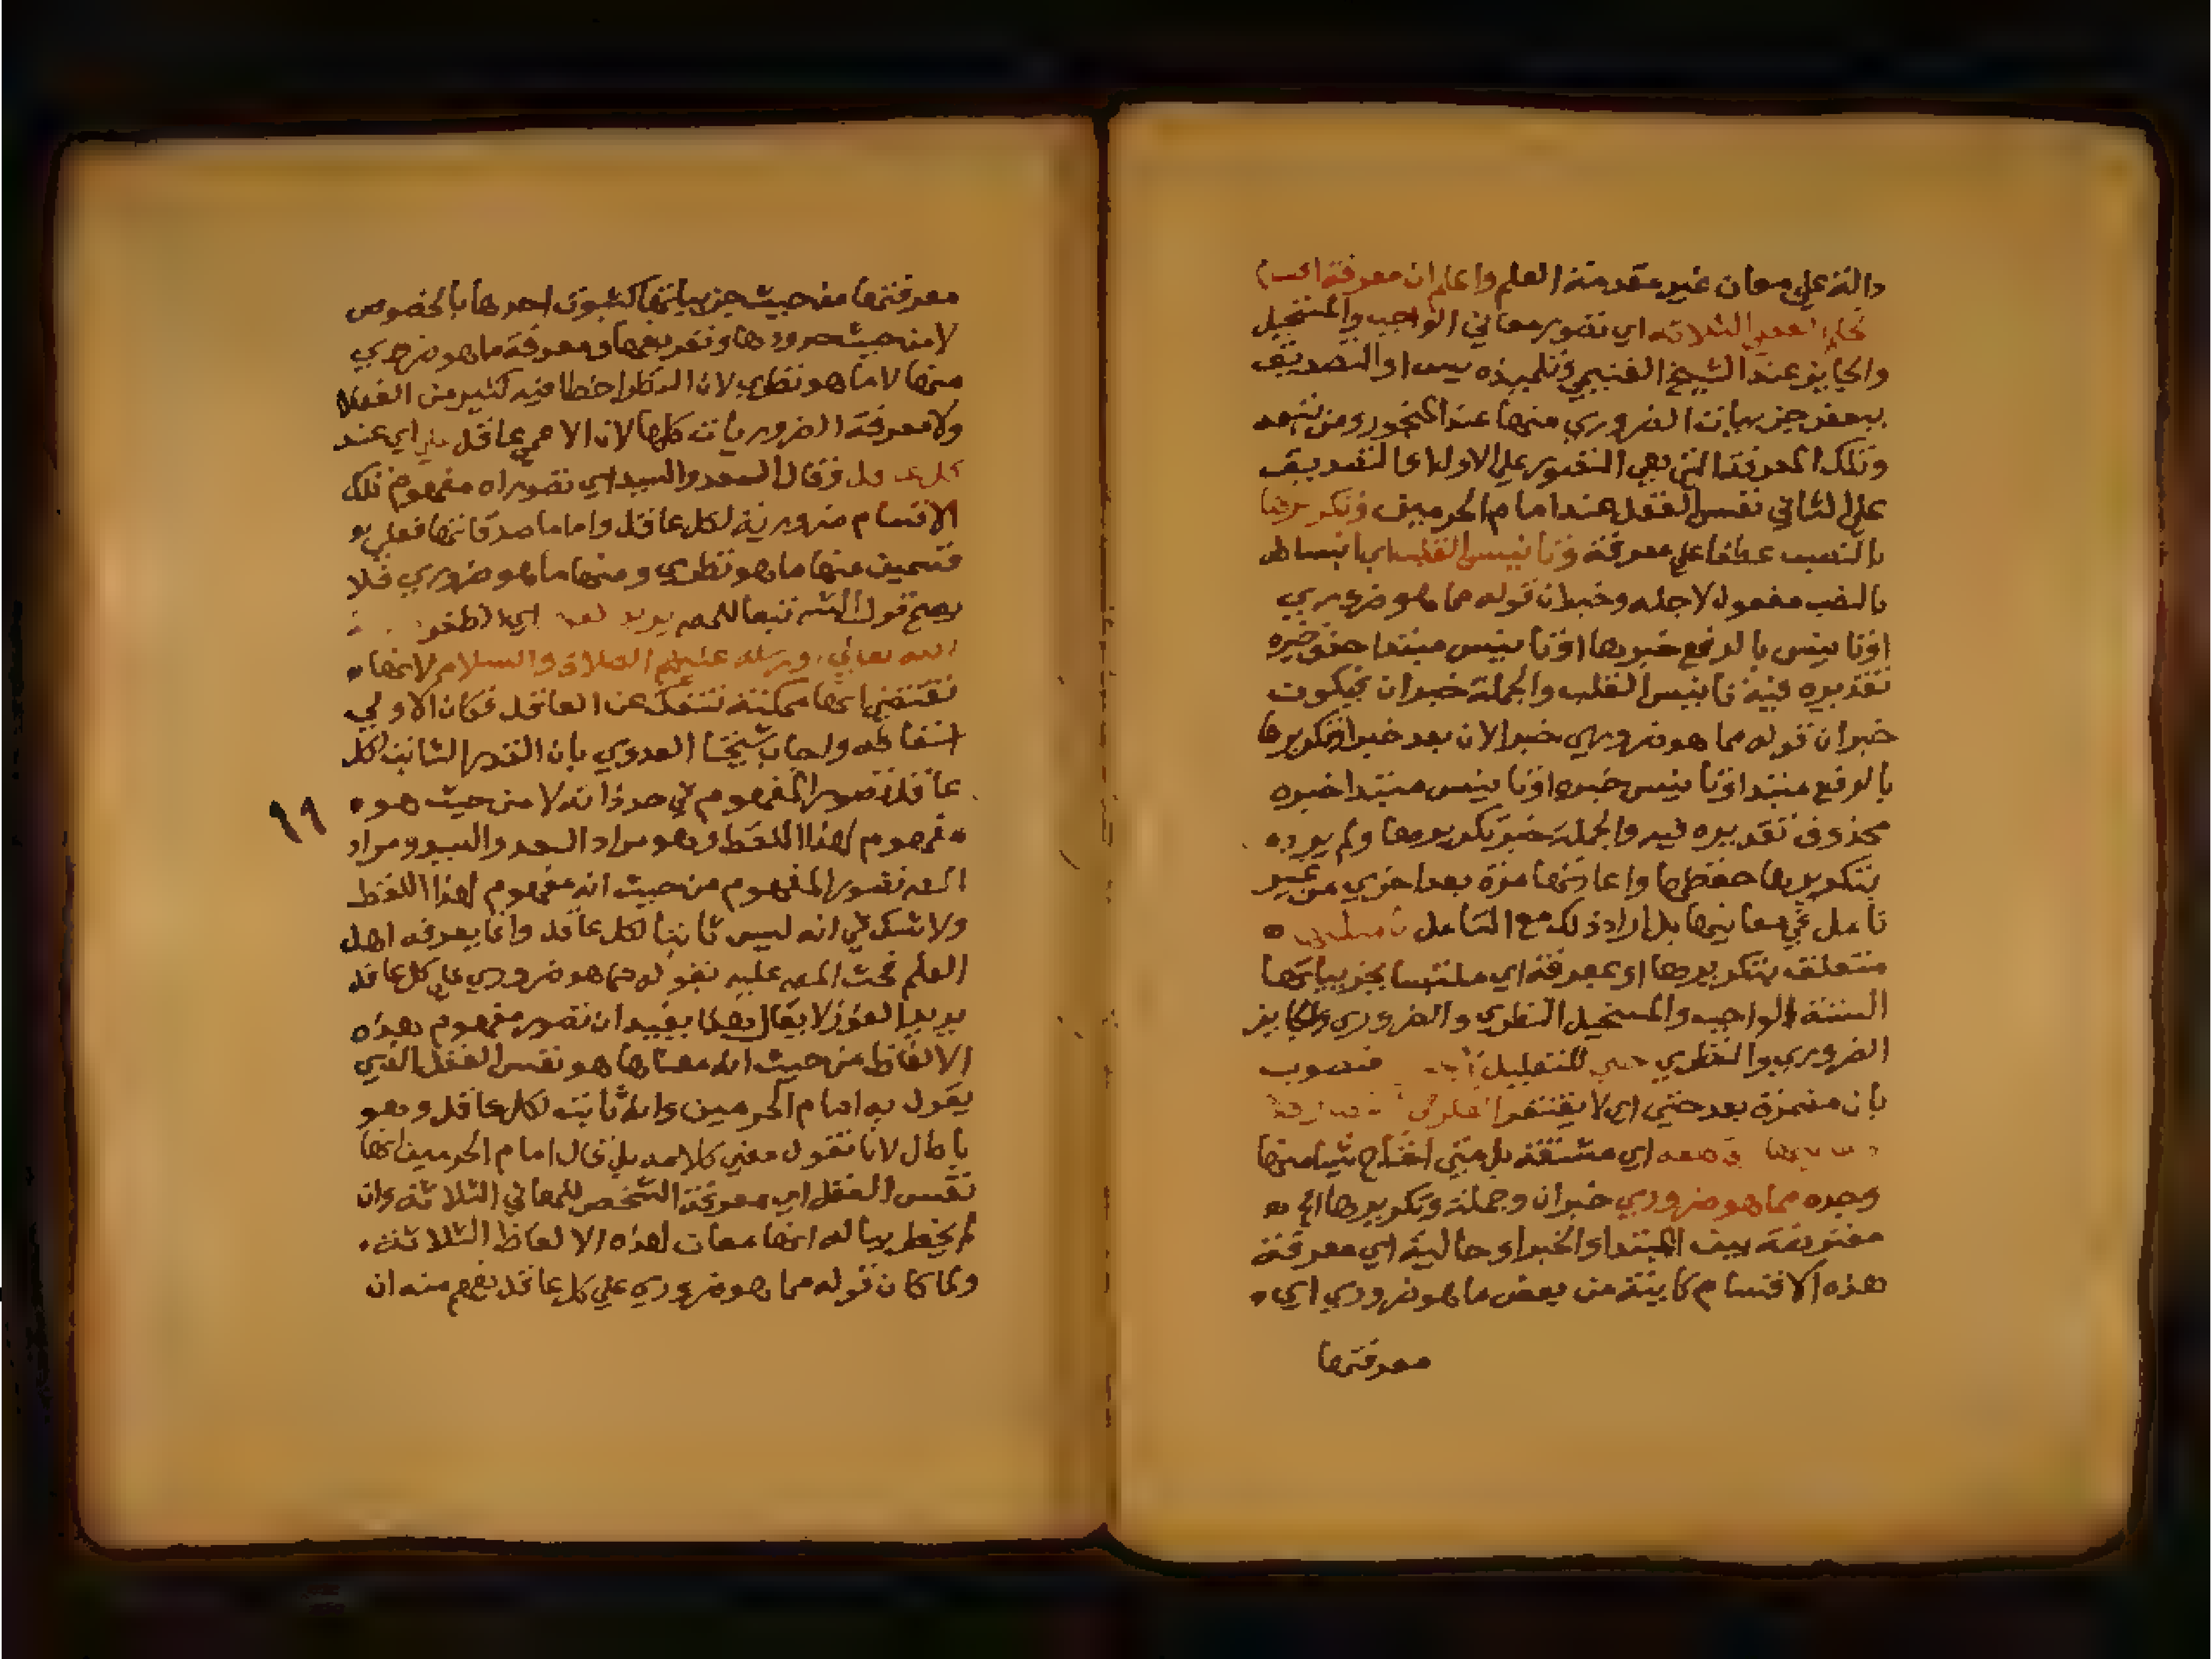 دالة على معان غير مقدمة العلم واعلم ان معرفة
الثلاثة اي تصور معاني الواجب والمستحيل
والجايز عند الشيخ الغنيمي وتلميذه يس او التصديق
ببعض جزييات الضروري منها عند المنجور ومن تبعه
وتلك المعرفة التي هي التصور على الاول او التصديق
على الثاني نفس العقل عند امام الحرمين وتكريرها
بالنصب عطفا على معرفة وتانيس القلب اي انبساط
بالنصب مفعول لاجله وخبر ان قوله مما هو ضروري
او تانيس بالرفع خبرها او تانيس مبتدا حذف خبره
تقديره فيه تانيس القلب والجملة خبر ان فيكون
خبر ان قوله مما هو ضروري خبر الان بعد خبر او تكريرها
بالرفع مبتدا وتانيس خبره او تانيس مبتدا خبره
محذوف تقديره فيه والجملة خبر تكريرها ولم يرد
بتكريرها حفظها واعادتها مرة بعد اخري من غير
تامل في معانيها بل اراد ذلك مع التامل
متعلقة بتكريرها او بمعرفة اي ملتبسا بجزيياتها
الستة الواجب والمستحيل النظري والضروري والجايز
الضروري والنظري حتي للتعليل منصوب
بان مضمرة بعد حتي اي لا يفتقر الفكر في
اي مشقة بل متي احتاج شيا منها
وجده مما هو ضروري خبر ان وجملة وتكريرها الخ
معترضة بين المبتدا والخبر او حالية اي معرفة
هذه الاقسام كاينة من بعض ما هو ضروري اي
معرفتها
معرفتها من حيث جزيياتها كثبوت احدها بالخصوص
لا من حيث حدودها وتعريفها ومعرفة ما هو ضروري
منها لا ما هو نظري لان النظر اخطا فيه كثير من العقلا
ولا معرفة الضروريات كلها لان الاعمي عاقل علي اي عند
كل عاقل وقال السعد والسيد اي تصوراه مفهوم تلك
الاقسام ضرورية لكل عاقل واما ما صدقاتها فعلي
قسمين منها ما هو نظري ومنها ما هو ضروري فلا
يصح قول الش تبعا للمص يريد اي الظفر
الله تعالي ورسله عليهم الصلاة والسلام لانها
تقتضي انها ممكنة تنفك عن العاقل فكان الاولي
اسقاطه واجاب شيخنا العدوي بان القدر الثابت لكل
عاقل تصور المفهوم في حد ذاته لا من حيث هو
مفهوم لهذا اللفظ وهو مراد السعد والسيد ومراد
المص تصور المفهوم من حيث انه مفهوم لهذا اللفظ
ولا شك في انه ليس ثابتا لكل عاقل وانما يعرفه اهل
العلم فحث المص عليه بقوله مما هو ضروري علي كل عاقل
يريد الفوز لا يقال هذا يفيد ان تصور مفهوم هذه
الالفاظ من حيث انه معناها هو نفس العقل الذي
يقول به امام الحرمين وانه ثابت لكل عاقل وهو
باطل لانا نقول معني كلامه بل قال امام الحرمين انها
نفس العقل اي معرفة الشخص للمعاني الثلاثة وان
لم يخطر بباله انها معان لهذه الالفاظ الثلاثة
ولما كان قوله مما هو ضروري علي كل عاقل يفهم منه ان
١٩